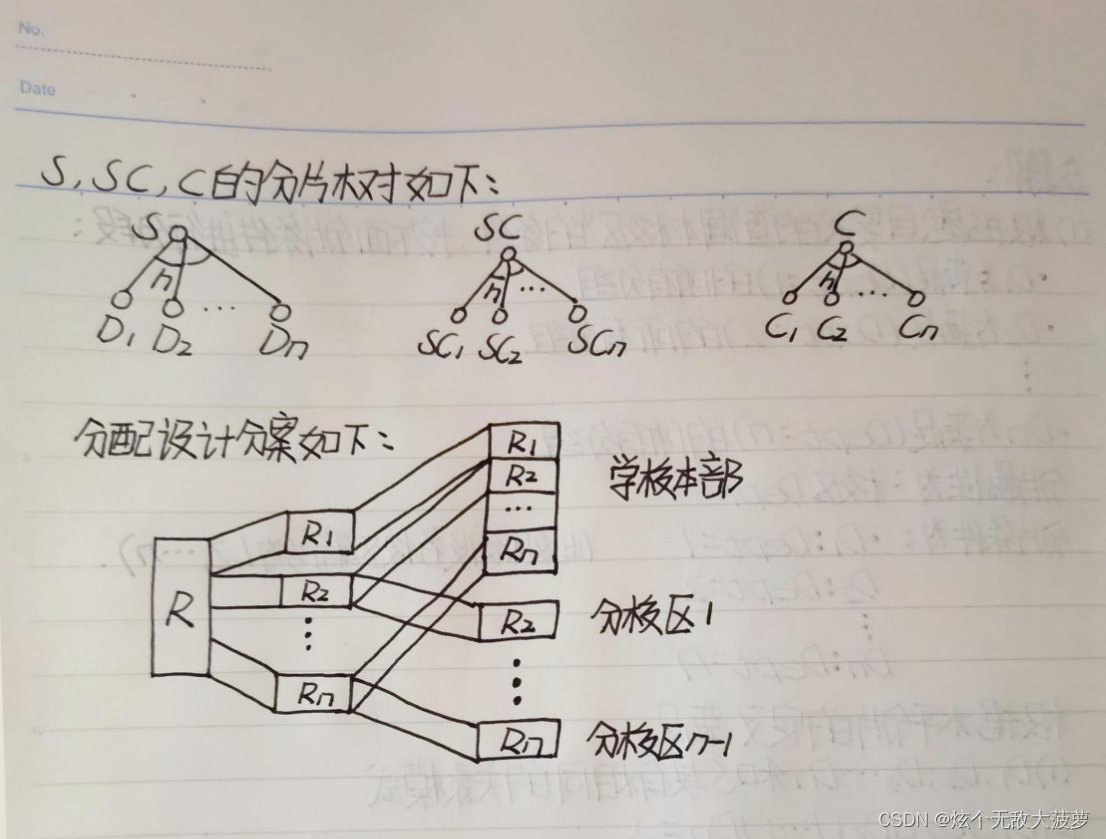 No.
Date
S, SC, C的分片树对如下:
S SC C
n n n
D1 D2 … Dn SC1 SC2 … SCn C1 C2 … Cn
分配设计分案如下:
R1
R2
…
Rn
学校本部
R
R1
R2
⋮
Rn
R2 分校区1
⋮
Rn 分校区n-1
CSDN @炫个无敌大菠萝